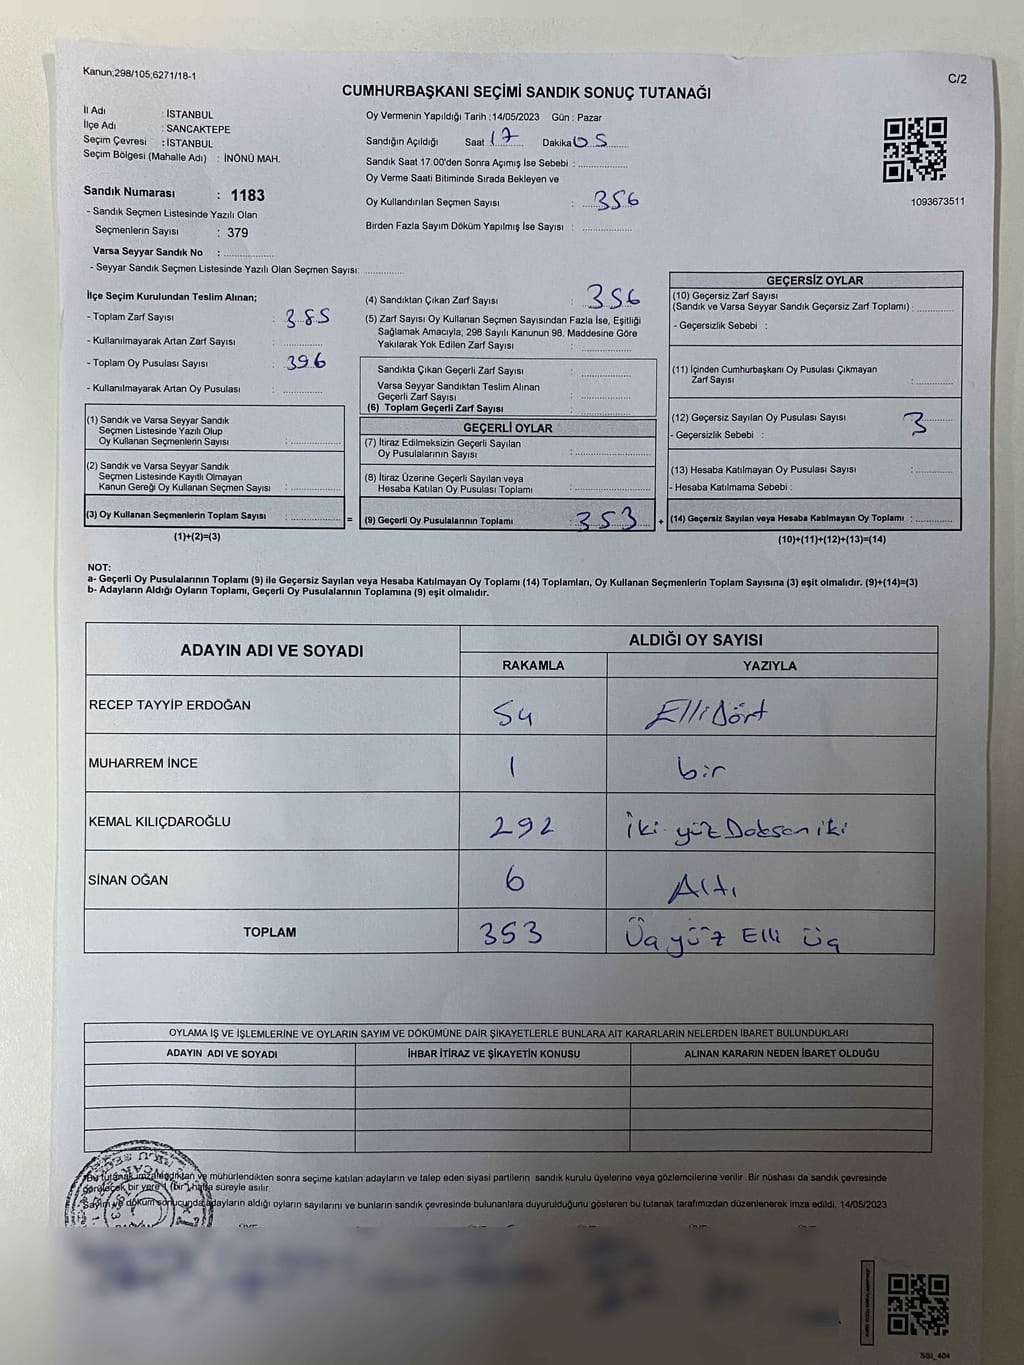 Kanun;298/105;6271/18-1
C/2
CUMHURBAŞKANI SEÇİMİ SANDIK SONUÇ TUTANAĞI
İl Adı : İSTANBUL
İlçe Adı : SANCAKTEPE
Seçim Çevresi : İSTANBUL
Seçim Bölgesi (Mahalle Adı) : İNÖNÜ MAH.
Sandık Numarası : 1183
- Sandık Seçmen Listesinde Yazılı Olan
Seçmenlerin Sayısı : 379
Varsa Seyyar Sandık No :
- Seyyar Sandık Seçmen Listesinde Yazılı Olan Seçmen Sayısı:
Oy Vermenin Yapıldığı Tarih :14/05/2023 Gün : Pazar
Sandığın Açıldığı Saat 17 Dakika 05
Sandık Saat 17.00'den Sonra Açımış İse Sebebi :
Oy Verme Saati Bitiminde Sırada Bekleyen ve
Oy Kullandırılan Seçmen Sayısı : 356
Birden Fazla Sayım Döküm Yapılmış İse Sayısı :
1093673511
İlçe Seçim Kurulundan Teslim Alınan;
- Toplam Zarf Sayısı : 385
- Kullanılmayarak Artan Zarf Sayısı :
- Toplam Oy Pusulası Sayısı : 396
- Kullanılmayarak Artan Oy Pusulası :
(1) Sandık ve Varsa Seyyar Sandık
Seçmen Listesinde Yazılı Olup
Oy Kullanan Seçmenlerin Sayısı :
(2) Sandık ve Varsa Seyyar Sandık
Seçmen Listesinde Kayıtlı Olmayan
Kanun Gereği Oy Kullanan Seçmen Sayısı :
(3) Oy Kullanan Seçmenlerin Toplam Sayısı :
(1)+(2)=(3)
(4) Sandıktan Çıkan Zarf Sayısı : 356
(5) Zarf Sayısı Oy Kullanan Seçmen Sayısından Fazla İse, Eşitliği
Sağlamak Amacıyla; 298 Sayılı Kanunun 98. Maddesine Göre
Yakılarak Yok Edilen Zarf Sayısı :
Sandıkta Çıkan Geçerli Zarf Sayısı :
Varsa Seyyar Sandıktan Teslim Alınan
Geçerli Zarf Sayısı :
(6) Toplam Geçerli Zarf Sayısı :
GEÇERLİ OYLAR
(7) İtiraz Edilmeksizin Geçerli Sayılan
Oy Pusulalarının Sayısı :
(8) İtiraz Üzerine Geçerli Sayılan veya
Hesaba Katılan Oy Pusulası Toplamı :
= (9) Geçerli Oy Pusulalarının Toplamı : 353 +
GEÇERSİZ OYLAR
(10) Geçersiz Zarf Sayısı
(Sandık ve Varsa Seyyar Sandık Geçersiz Zarf Toplamı) :
- Geçersizlik Sebebi :
(11) İçinden Cumhurbaşkanı Oy Pusulası Çıkmayan
Zarf Sayısı :
(12) Geçersiz Sayılan Oy Pusulası Sayısı : 3
- Geçersizlik Sebebi :
(13) Hesaba Katılmayan Oy Pusulası Sayısı :
- Hesaba Katılmama Sebebi :
(14) Geçersiz Sayılan veya Hesaba Katılmayan Oy Toplamı :
(10)+(11)+(12)+(13)=(14)
NOT:
a- Geçerli Oy Pusulalarının Toplamı (9) ile Geçersiz Sayılan veya Hesaba Katılmayan Oy Toplamı (14) Toplamları, Oy Kullanan Seçmenlerin Toplam Sayısına (3) eşit olmalıdır. (9)+(14)=(3)
b- Adayların Aldığı Oyların Toplamı, Geçerli Oy Pusulalarının Toplamına (9) eşit olmalıdır.
ADAYIN ADI VE SOYADI ALDIĞI OY SAYISI
RAKAMLA YAZIYLA
RECEP TAYYİP ERDOĞAN 54 Elli Dört
MUHARREM İNCE 1 bir
KEMAL KILIÇDAROĞLU 292 İki yüz Doksan iki
SİNAN OĞAN 6 Altı
TOPLAM 353 Üç yüz Elli üç
OYLAMA İŞ VE İŞLEMLERİNE VE OYLARIN SAYIM VE DÖKÜMÜNE DAİR ŞİKAYETLERLE BUNLARA AİT KARARLARIN NELERDEN İBARET BULUNDUKLARI
ADAYIN ADI VE SOYADI İHBAR İTİRAZ VE ŞİKAYETİN KONUSU ALINAN KARARIN NEDEN İBARET OLDUĞU
Bu tutanak imzalandıktan ve mühürlendikten sonra seçime katılan adayların ve talep eden siyasi partilerin sandık kurulu üyelerine veya gözlemcilerine verilir. Bir nüshası da sandık çevresinde
görülecek bir yere 1 (bir) hafta süreyle asılır.
Sayım ve döküm sonucunda adayların aldığı oyların sayılarını ve bunların sandık çevresinde bulunanlara duyurulduğunu gösteren bu tutanak tarafımızdan düzenlenerek imza edildi. 14/05/2023
SSI_404